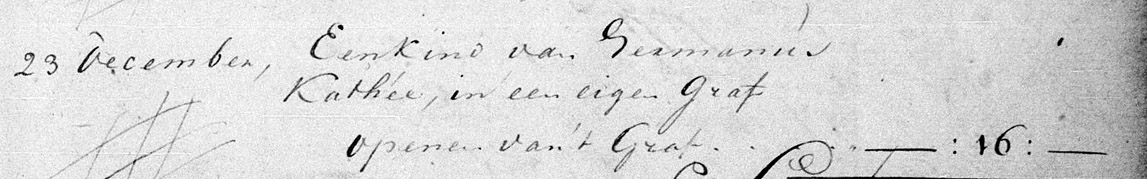 23 December, Een kind van Germanus
Kathée, in een eigen Graf
openen van't Graf . . . — : 16 : —